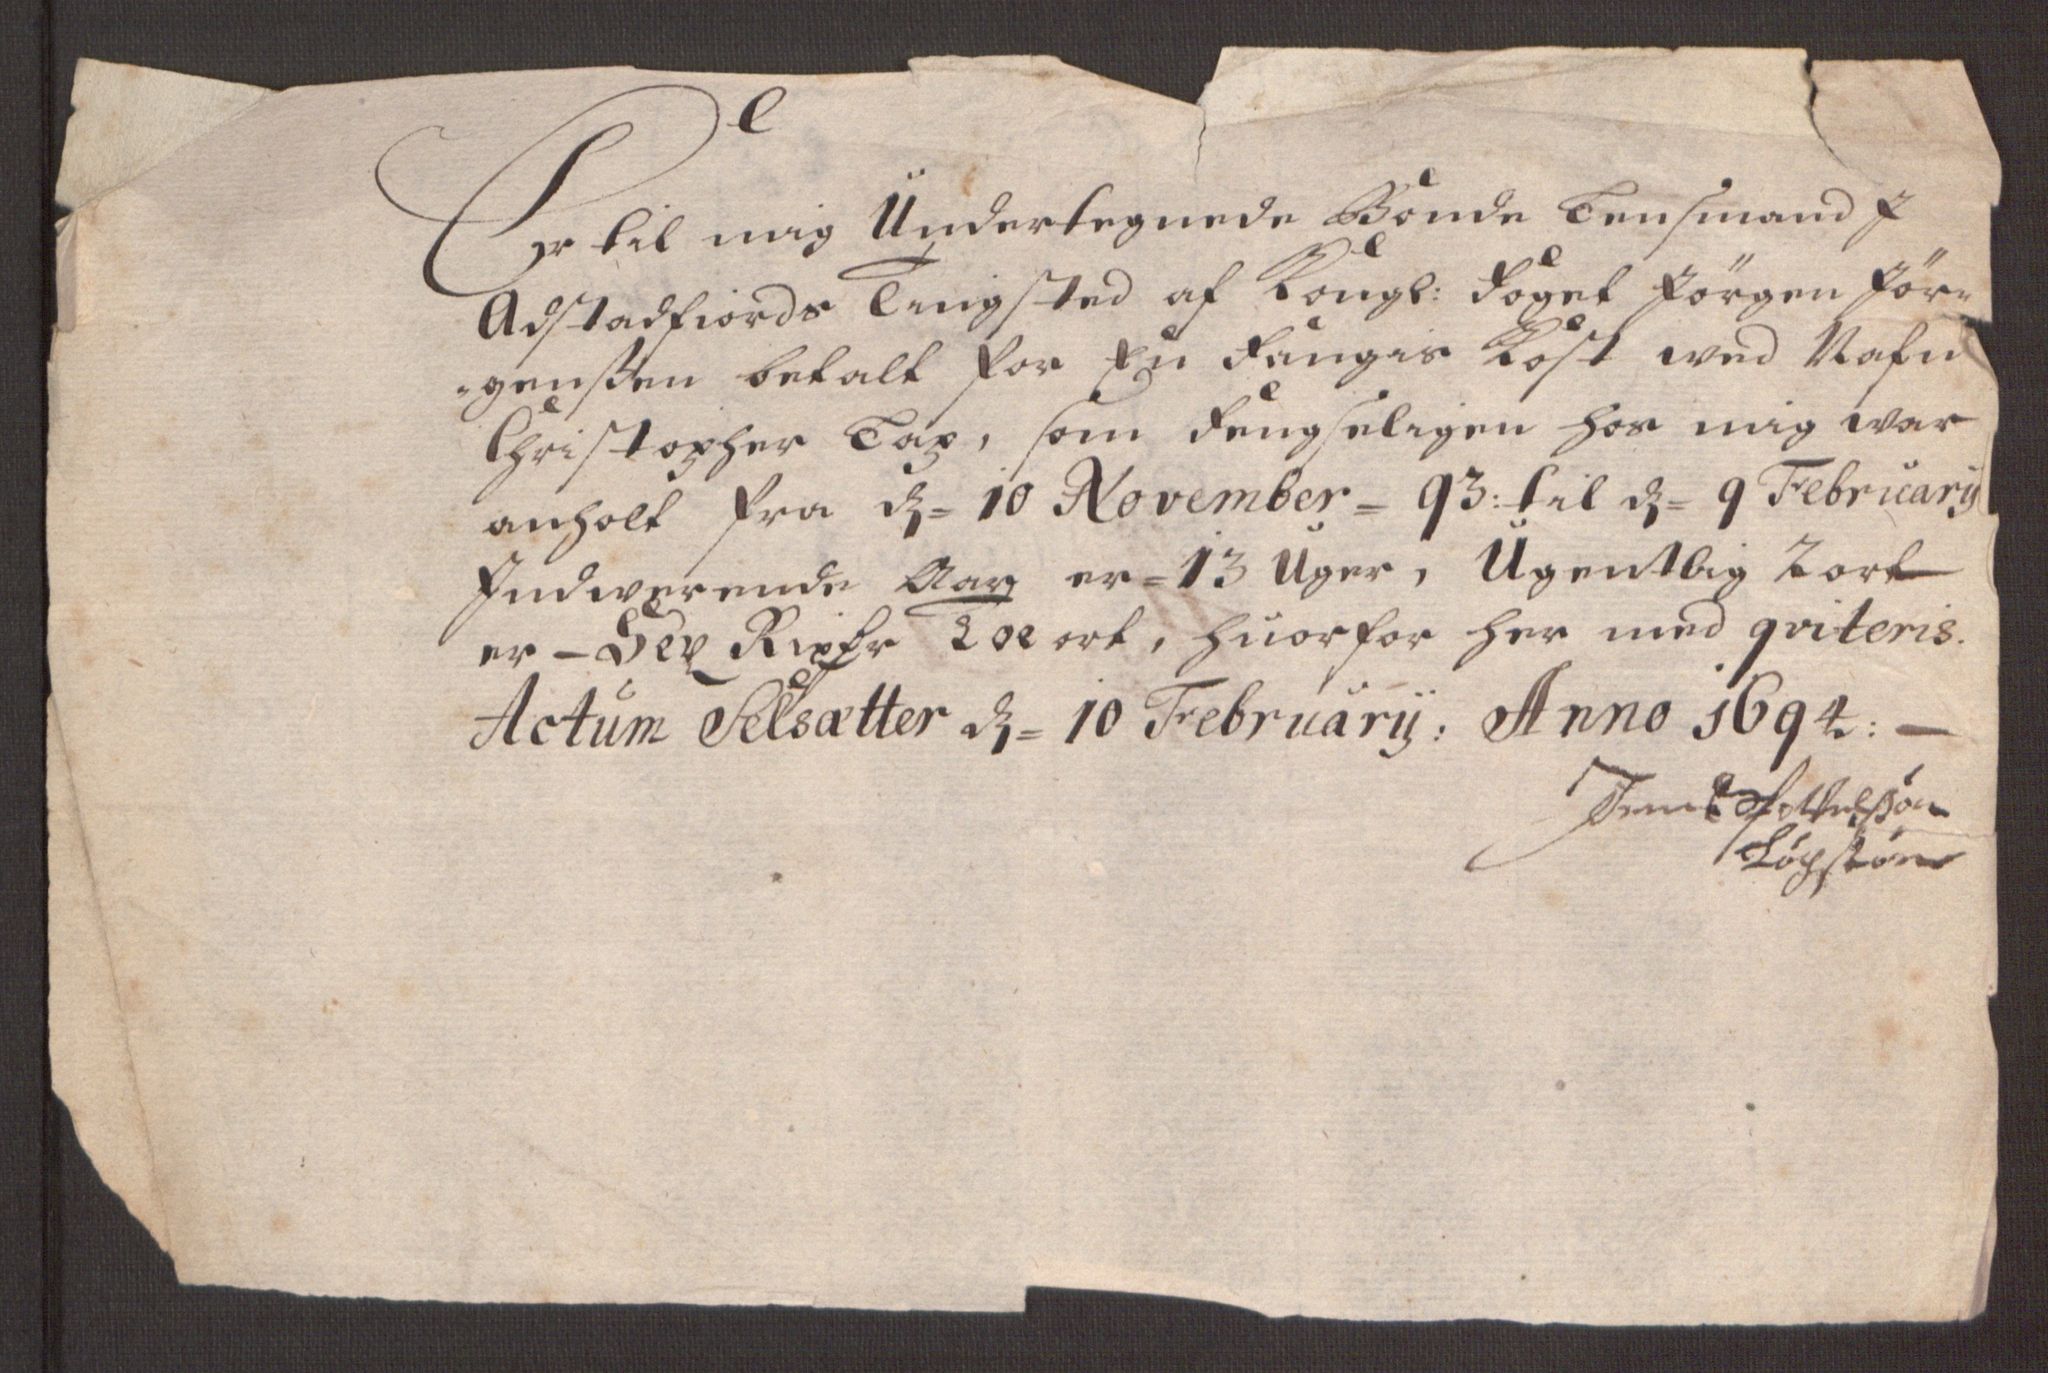 Er til mig Undertegnede Bonde Lensmand I
Adstadfiords Tingsted af Kongl: Foget Jörgen Jör-
-genssen betalt for En Fanges Kost wed Nafn
Christopher Tax, som Fengseligen hos mig war
anholt fra d= 10 November = 93: til d= 9 February
Indwerende Aar er = 13 Uger, Ugentlig 2 ort
er - Sex Rixdr Toe ort, huorfor her med qviteris.
Actum Selsætter d= 10 February: Anno 1694: —